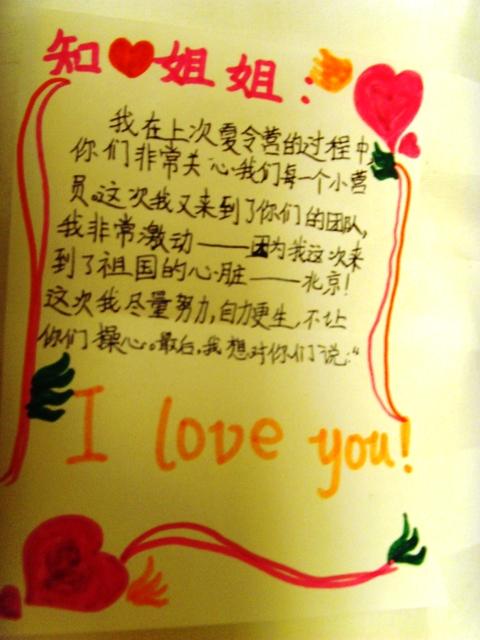 知❤姐姐：
我在上次夏令营的过程中
你们非常关心我们每一个小营
员。这次我又来到了你们的团队,
我非常激动——因为我这次来
到了祖国的心脏——北京!
这次我尽量努力,自力更生,不让
你们操心。最后,我想对你们说:“
I love you!